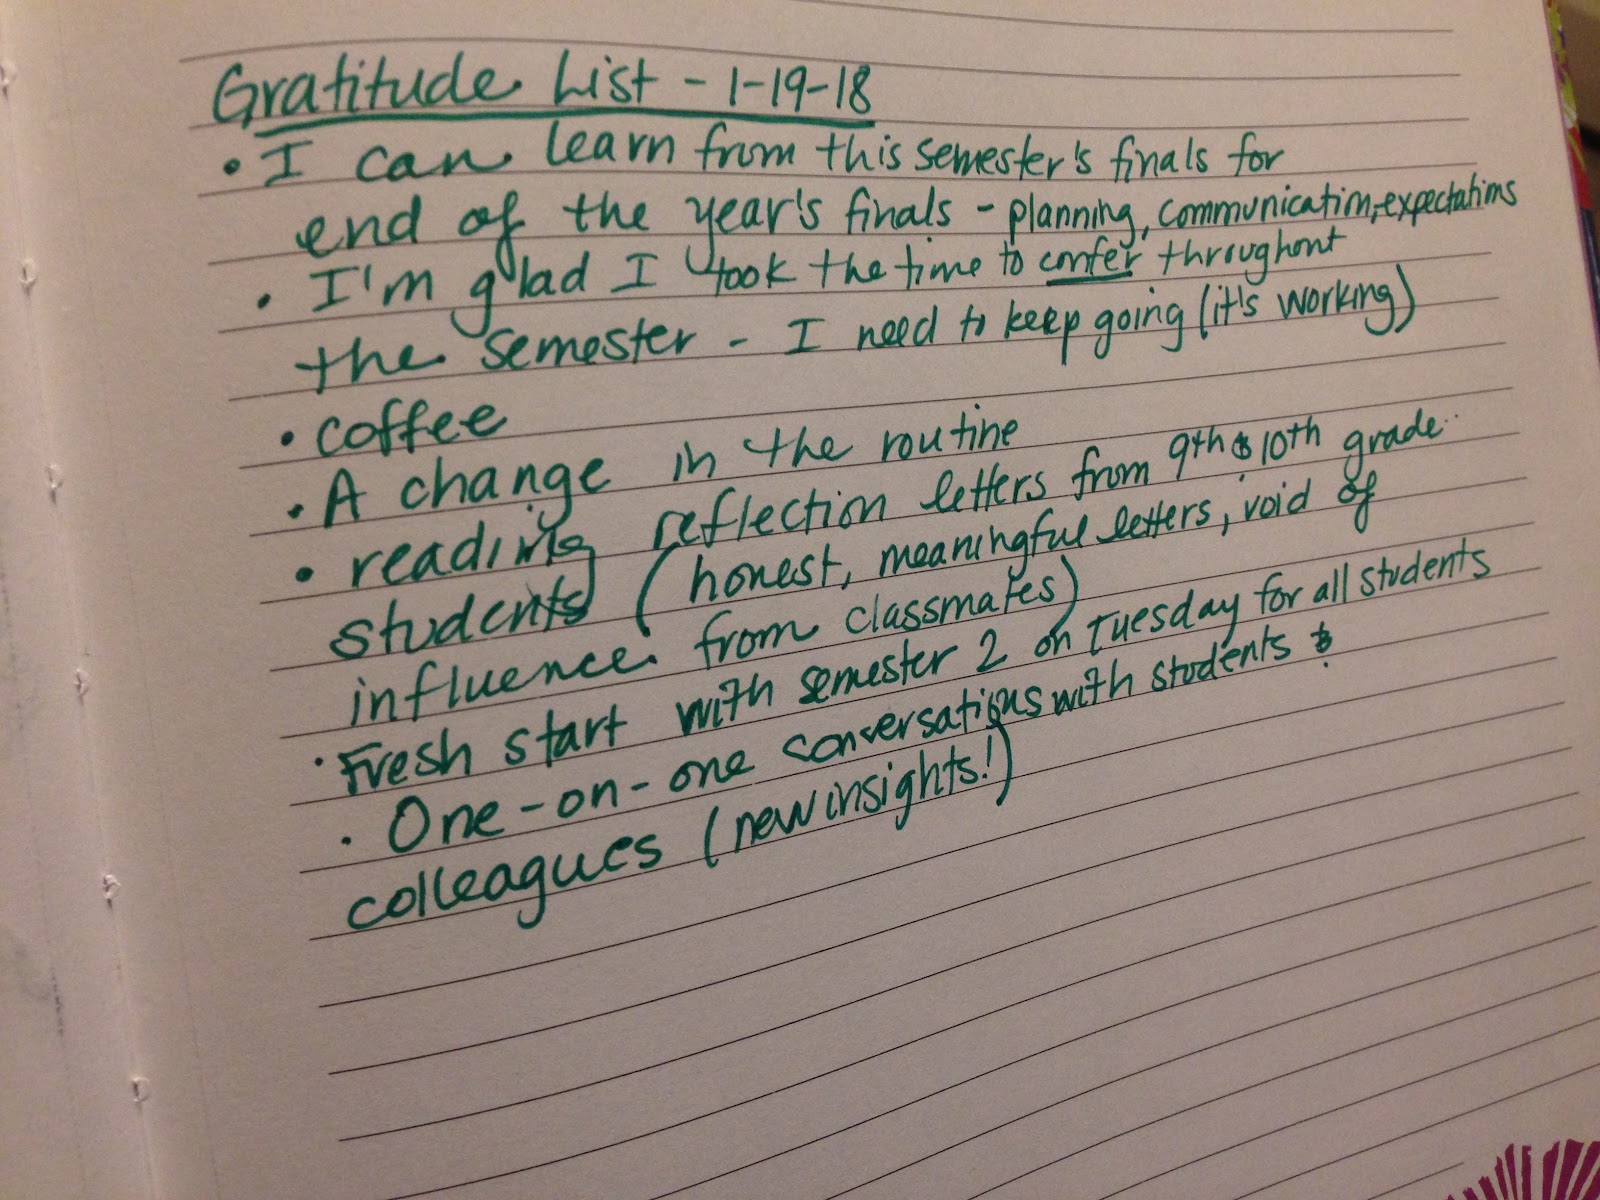 Gratitude List - 1-19-18
• I can learn from this semester's finals for
end of the year's finals - planning, communication, expectations
• I'm glad I took the time to confer throughout
the semester - I need to keep going (it's working)
• coffee
• A change in the routine
• reading reflection letters from 9th & 10th grade
students (honest, meaningful letters, void of
influence from classmates)
• Fresh start with semester 2 on Tuesday for all students
• One-on-one conversations with students &
colleagues (new insights!)